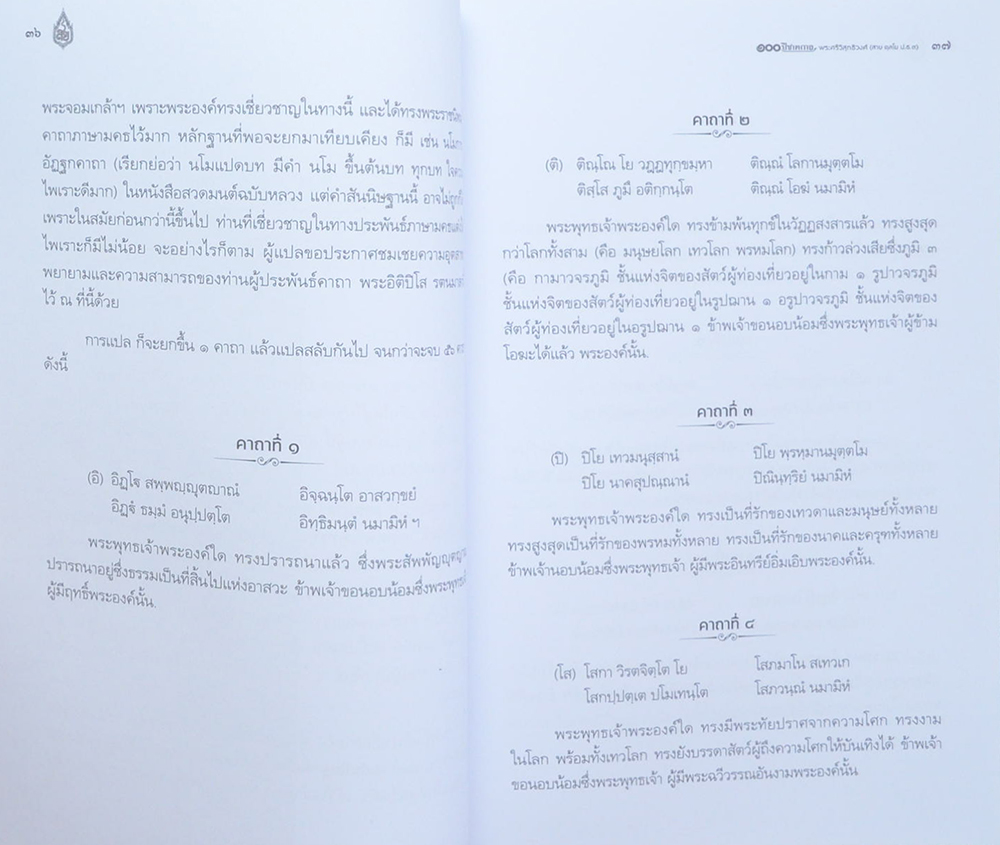 ๓๖
พระจอมเกล้าฯ เพราะพระองค์ทรงเชี่ยวชาญในทางนี้ และได้ทรงพระราชนิพ
คาถาภาษามคธไว้มาก หลักฐานที่พอจะยกมาเทียบเคียง ก็มี เช่น นโมก
อัฏฐกคาถา (เรียกย่อว่า นโมแปดบท มีคำ นโม ขึ้นต้นบท ทุกบท
ไพเราะดีมาก) ในหนังสือสวดมนต์ฉบับหลวง แต่คำสันนิษฐานนี้
เพราะในสมัยก่อนกว่านี้ขึ้นไป ท่านที่เชี่ยวชาญในทางประพันธ์ภาษามคธ
ไพเราะก็มีไม่น้อย จะอย่างไรก็ตาม ผู้แปลขอประกาศชมเชยความ
พยายามและความสามารถของท่านผู้ประพันธ์คาถา พระอิติปิโส
ไว้ ณ ที่นี้ด้วย
การแปล ก็จะยกขึ้น ๑ คาถา แล้วแปลสลับกันไป จนกว่าจะจบ ๕๖
ดังนี้
คาถาที่ ๑
(อิ) อิฏฺโฐ สพฺพญฺญุตญาณํ อิจฺฉนฺโต อาสวกฺขยํ
อิฏฺฐํ ธมฺมํ อนุปฺปตฺโต อิทฺธิมนฺตํ นมามิหํ ฯ
พระพุทธเจ้าพระองค์ใด ทรงปรารถนาแล้ว ซึ่งพระสัพพัญญุตญาณ
ปรารถนาอยู่ซึ่งธรรมเป็นที่สิ้นไปแห่งอาสวะ ข้าพเจ้าขอนอบน้อมซึ่งพระพุทธเจ้า
ผู้มีฤทธิ์พระองค์นั้น.
๑๐๐ ปีชาตกาล, พระศรีวิสุทธิวงศ์ ๓๗
คาถาที่ ๒
(ติ) ติณฺโณ โย วฏฺฏทุกฺขมฺหา ติณฺณํ โลกานมุตฺตโม
ติสฺโส ภูมี อติกฺกนฺโต ติณฺณํ โอฆํ นมามิหํ
พระพุทธเจ้าพระองค์ใด ทรงข้ามพ้นทุกข์ในวัฏฏสงสารแล้ว ทรงสูงสุด
กว่าโลกทั้งสาม (คือ มนุษยโลก เทวโลก พรหมโลก) ทรงก้าวล่วงเสียซึ่งภูมิ ๓
(คือ กามาวจรภูมิ ชั้นแห่งจิตของสัตว์ผู้ท่องเที่ยวอยู่ในกาม ๑ รูปาวจรภูมิ
ชั้นแห่งจิตของสัตว์ผู้ท่องเที่ยวอยู่ในรูปฌาน ๑ อรูปาวจรภูมิ ชั้นแห่งจิตของ
สัตว์ผู้ท่องเที่ยวอยู่ในอรูปฌาน ๑ ข้าพเจ้าขอนอบน้อมซึ่งพระพุทธเจ้าผู้ข้าม
โอฆะได้แล้ว พระองค์นั้น.
คาถาที่ ๓
(ปิ) ปิโย เทวมนุสฺสานํ ปิโย พฺรหฺมานมุตฺตโม
ปิโย นาคสุปณฺณานํ ปิณินฺทฺริยํ นมามิหํ
พระพุทธเจ้าพระองค์ใด ทรงเป็นที่รักของเทวดาและมนุษย์ทั้งหลาย
ทรงสูงสุดเป็นที่รักของพรหมทั้งหลาย ทรงเป็นที่รักของนาคและครุฑทั้งหลาย
ข้าพเจ้านอบน้อมซึ่งพระพุทธเจ้า ผู้มีพระอินทรีย์อิ่มเอิบพระองค์นั้น.
คาถาที่ ๔
(โส) โสกา วิรตจิตฺโต โย โสภมาโน สเทวเก
โสกปฺปตฺเต ปโมเทนฺโต โสภวณฺณํ นมามิหํ
พระพุทธเจ้าพระองค์ใด ทรงมีพระทัยปราศจากความโศก ทรงงาม
ในโลก พร้อมทั้งเทวโลก ทรงยังบรรดาสัตว์ผู้ถึงความโศกให้บันเทิงได้ ข้าพเจ้า
ขอนอบน้อมซึ่งพระพุทธเจ้า ผู้มีพระฉวีวรรณอันงามพระองค์นั้น